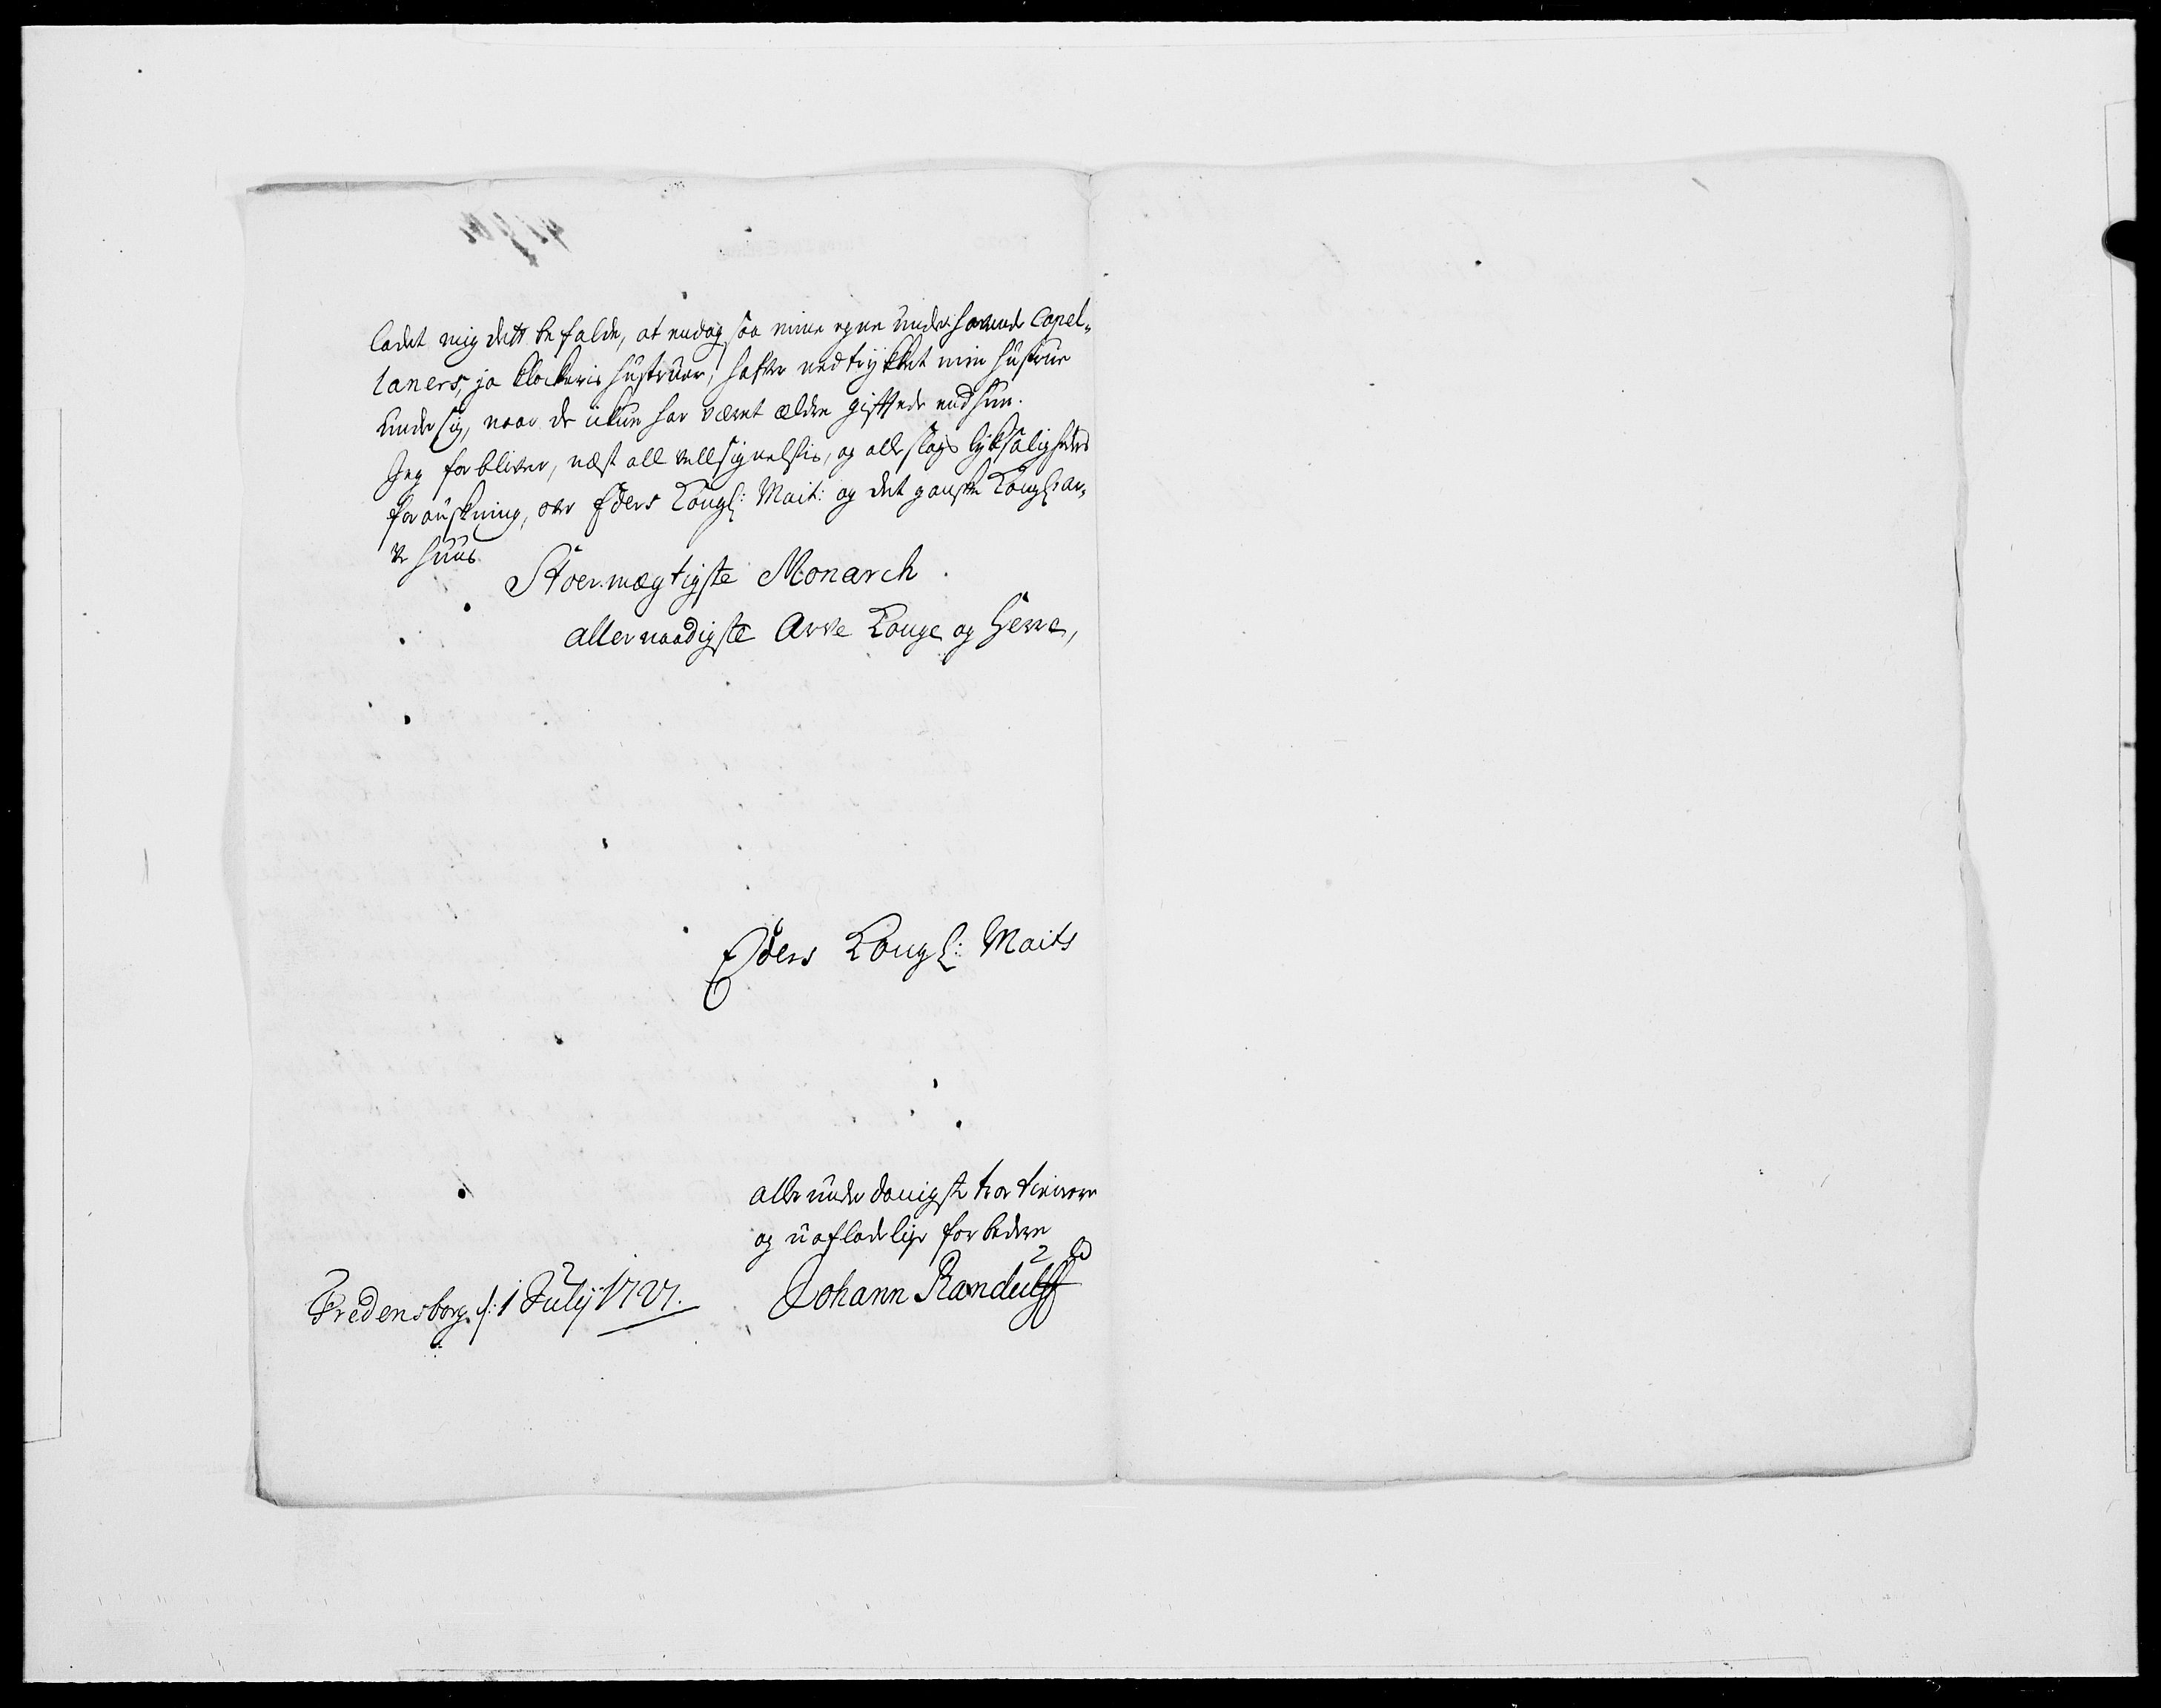 ladet mig dett befalde, at endog saa mine egne underhavende Capel-
laners, ja Klockeris hustruer, hafver nedtrykket min hustrue
under sig, naar de ickun har været ældre gifftede end hun.
Jeg forbliver, næst all velsignelsis, og alle slags lyksaligheds
forønskning, over Eders Kongl: Mait: og det ganske Kongl: ar-
ve huus
Stoermægtigste Monarch
allernaadigste Arve Konge og Herre,
Eders Kongl: Maits
allerunderdanigst troe tienere
og uafladelige forbedere
Johann Randulff
Fredensborg d: 1 Julij 1727.